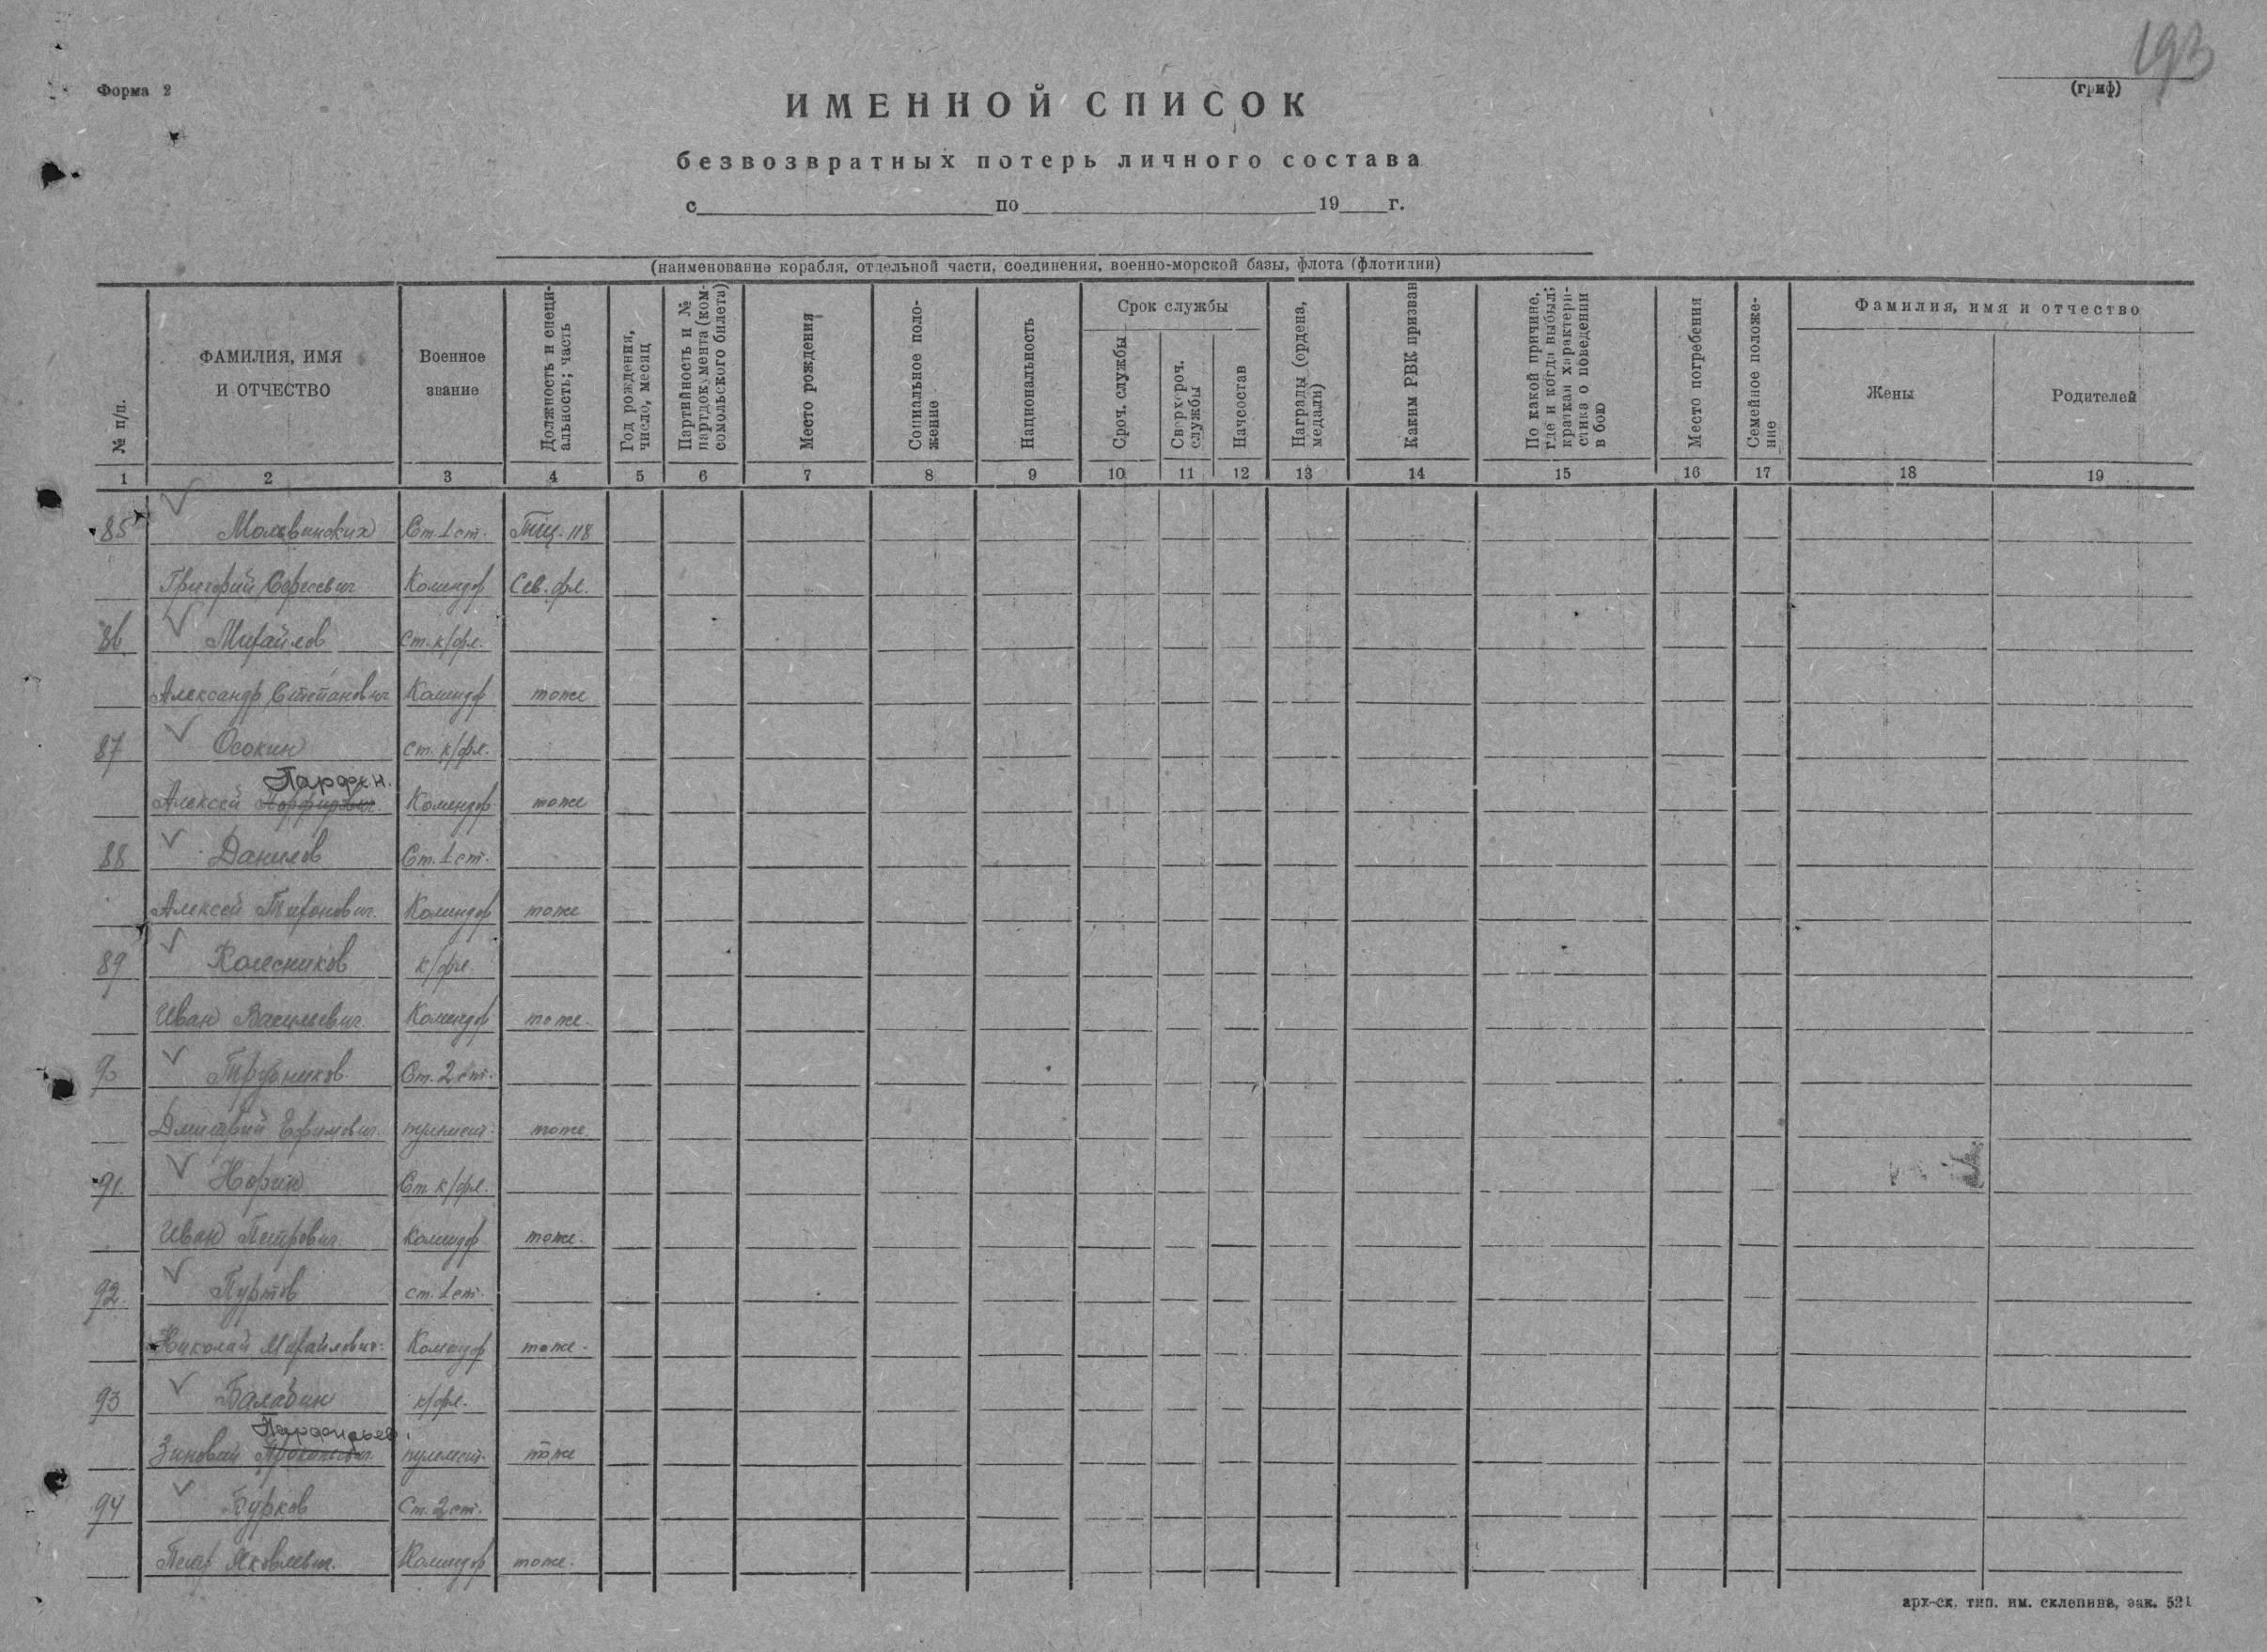 193
Форма 2
(гриф)
ИМЕННОЙ СПИСОК
безвозвратных потерь личного состава
с по 19 г.
(наименование корабля, отдельной части, соединения, военно-морской базы, флота (флотилии)
№ п/п.
ФАМИЛИЯ, ИМЯ
И ОТЧЕСТВО
Военное
звание
Должность и специ-
альность; часть
Год рождения,
число, месяц
Партийность и №
партдокумента (ком-
сомольского билета)
Место рождения
Социальное поло-
жение
Национальность
Срок службы
Сроч. службы
Сверхсроч.
службы
Начсостав
Награды (ордена,
медали)
Каким РВК призван
По какой причине,
где и когда выбыл;
краткая характери-
стика о поведении
в бою
Место погребения
Семейное положе-
ние
Фамилия, имя и отчество
Жены
Родителей
1 2 3 4 5 6 7 8 9 10 11 12 13 14 15 16 17 18 19
85 Ст. 1 ст. Тщ-118
Григорий Сергеевич Комендор Сев. фл.
86 Михайлов Ст. к/фл.
Александр Степанович Комендор тоже
87 Осокин ст. к/фл.
Парфен.
Алексей Порфирович Комендор тоже
88 Данилов Ст. 1 ст.
Алексей Тихонович Комендор тоже
89 Колесников к/фл
Иван Васильевич Комендор тоже
90 Трубников Ст. 2 ст.
Дмитрий Ефимович пулемет. тоже
91. Норин Ст. к/фл.
Иван Петрович Комендор тоже.
92. Пуртов ст. 1 ст.
Николай Михайлович Комендор тоже.
93 Балабин к/фл.
Парфирьев.
Зиновий Прокопьевич пулемет. тоже
94 Бурков Ст. 2 ст.
Петр Яковлевич. Комендор тоже.
арх-ск. тип. им. склепина, зак. 521